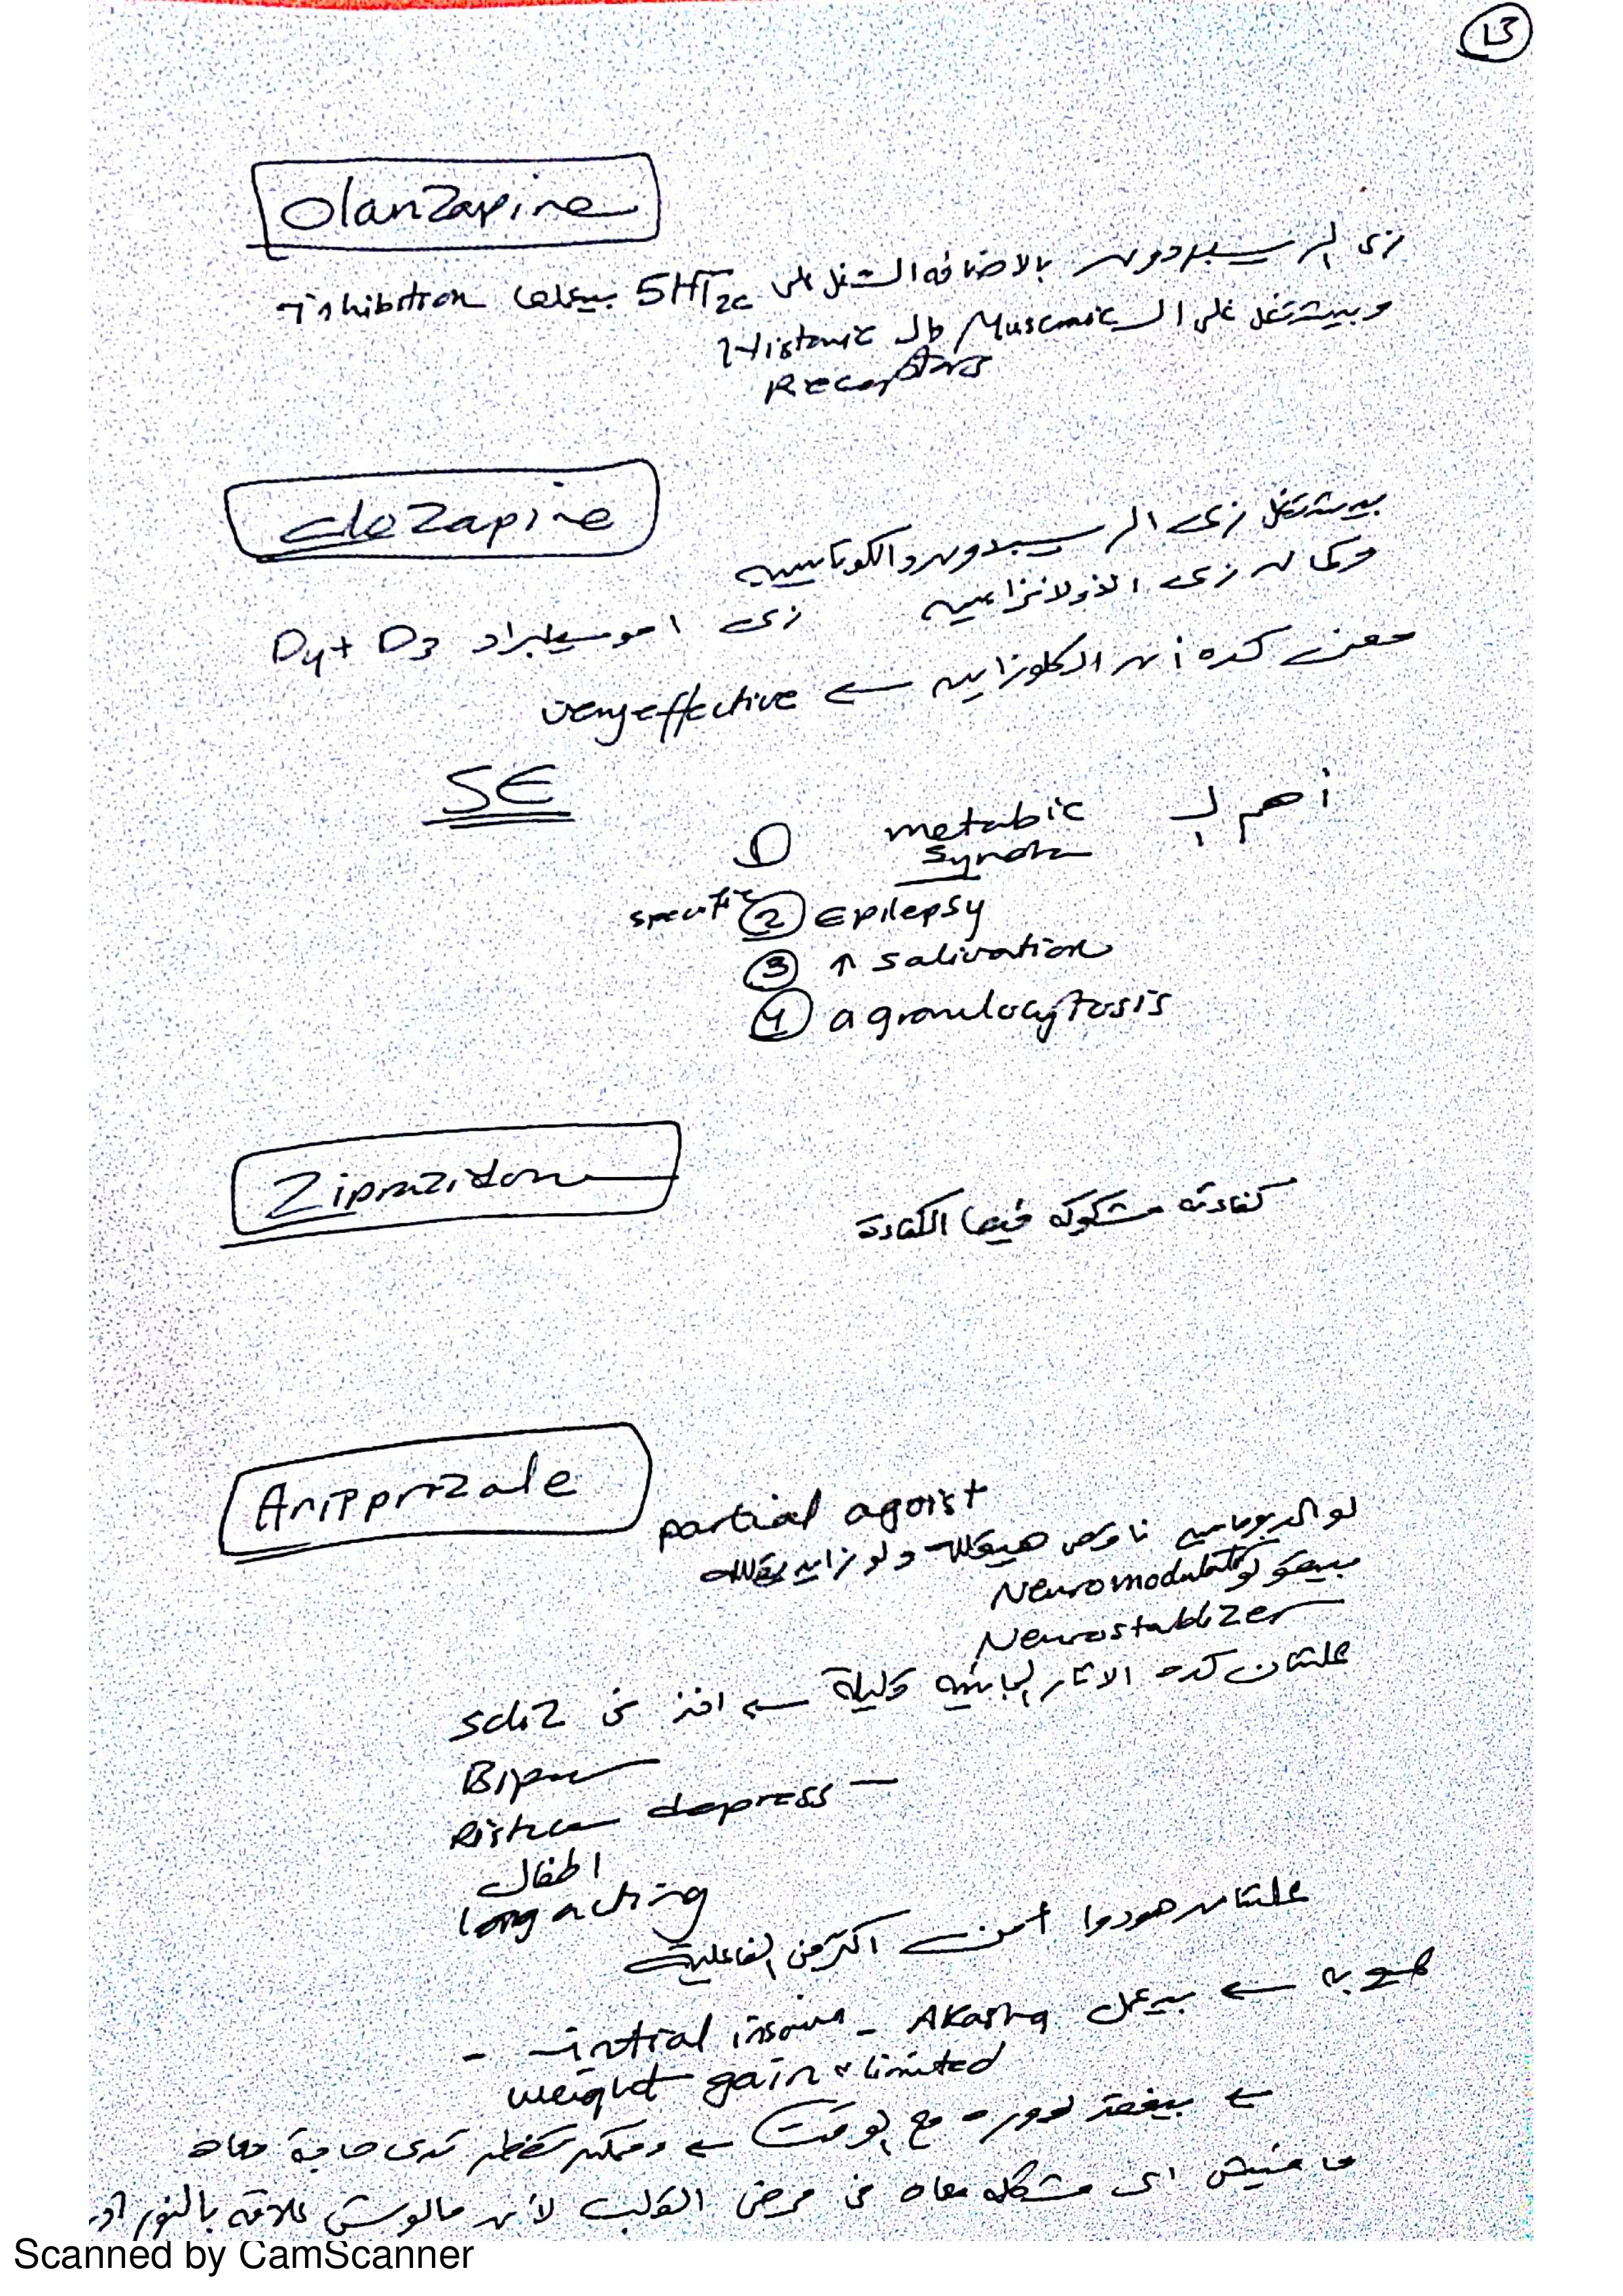 13
Olanzapine
زى الرسبيردون بالاضافه الشغل على 5HT2c بيعملها inhibition
وبيشتغل على الـ Muscrnic وال Histamic
Receptors
clozapine
بيشتغل زى الرسبيردون والكوتابين
وكمان زى الاولانزابين زى اموسيلبراد D4 + D3
معنى كده أن الكلوزابين ← very effective
SE
أهم الـ
① metabic
syndr
specific ② Epilepsy
③ ↑ salivation
④ agranulocytosis
Ziprazidon
كفاءته مشكوك فيها الكفاءة
Aripprizale
partial agoist
لو الدوبامين ناقص هيعليه ولو زايد يقلله
بيبقو لو Neuromodulat
Neurostablizer
علشان كده الاثار الجانبية قليلة ← افتر فى schiz
Bip
depress
اطفال
long acting
علشان هودوا أمن اكتر من الفاعلية
عيوبه ← بيعمل Akasthq - intial insomn -
weight gain limited
← بيفقد دوره مع الوقت ← وممكن تضطر تدى حاجة معاه
مافيش اى مشكله معاه فى مرض القلب لأن مالوش علاقه بالنور ادر
Scanned by CamScanner